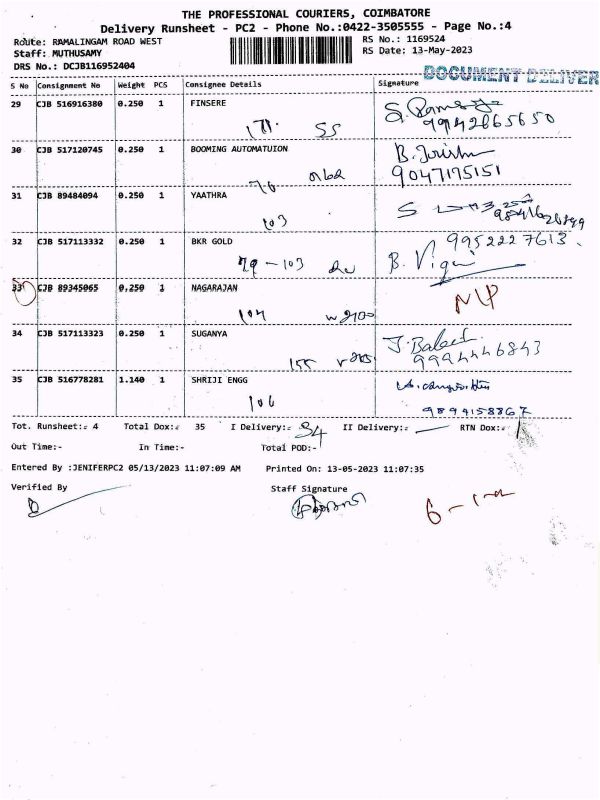 THE PROFESSIONAL COURIERS, COIMBATORE
Delivery Runsheet - PC2 - Phone No.:0422-3505555 - Page No.:4
Route: RAMALINGAM ROAD WEST RS No.: 1169524
Staff: MUTHUSAMY RS Date: 13-May-2023
DRS No.: DCJB116952404 DOCUMENT DELIVER
S No Consignment No Weight PCS Consignee Details Signature
29 CJB 516916380 0.250 1 FINSERE
171. SS 9942665650
30 CJB 517120745 0.250 1 BOOMING AUTOMATUION
76 9047175151
31 CJB 89484094 0.250 1 YAATHRA
103
32 CJB 517113332 0.250 1 BKR GOLD 9952227613.
79 - 103 B.
33 CJB 89345065 0.250 1 NAGARAJAN
104 N/P
34 CJB 517113323 0.250 1 SUGANYA
155 9994446843
35 CJB 516778281 1.140 1 SHRIJI ENGG
106 9899158867
Tot. Runsheet:- 4 Total Dox:- 35 I Delivery:- 34 II Delivery:- — RTN Dox:- 1
Out Time:- In Time:- Total POD:-
Entered By :JENIFERPC2 05/13/2023 11:07:09 AM Printed On: 13-05-2023 11:07:35
Verified By Staff Signature